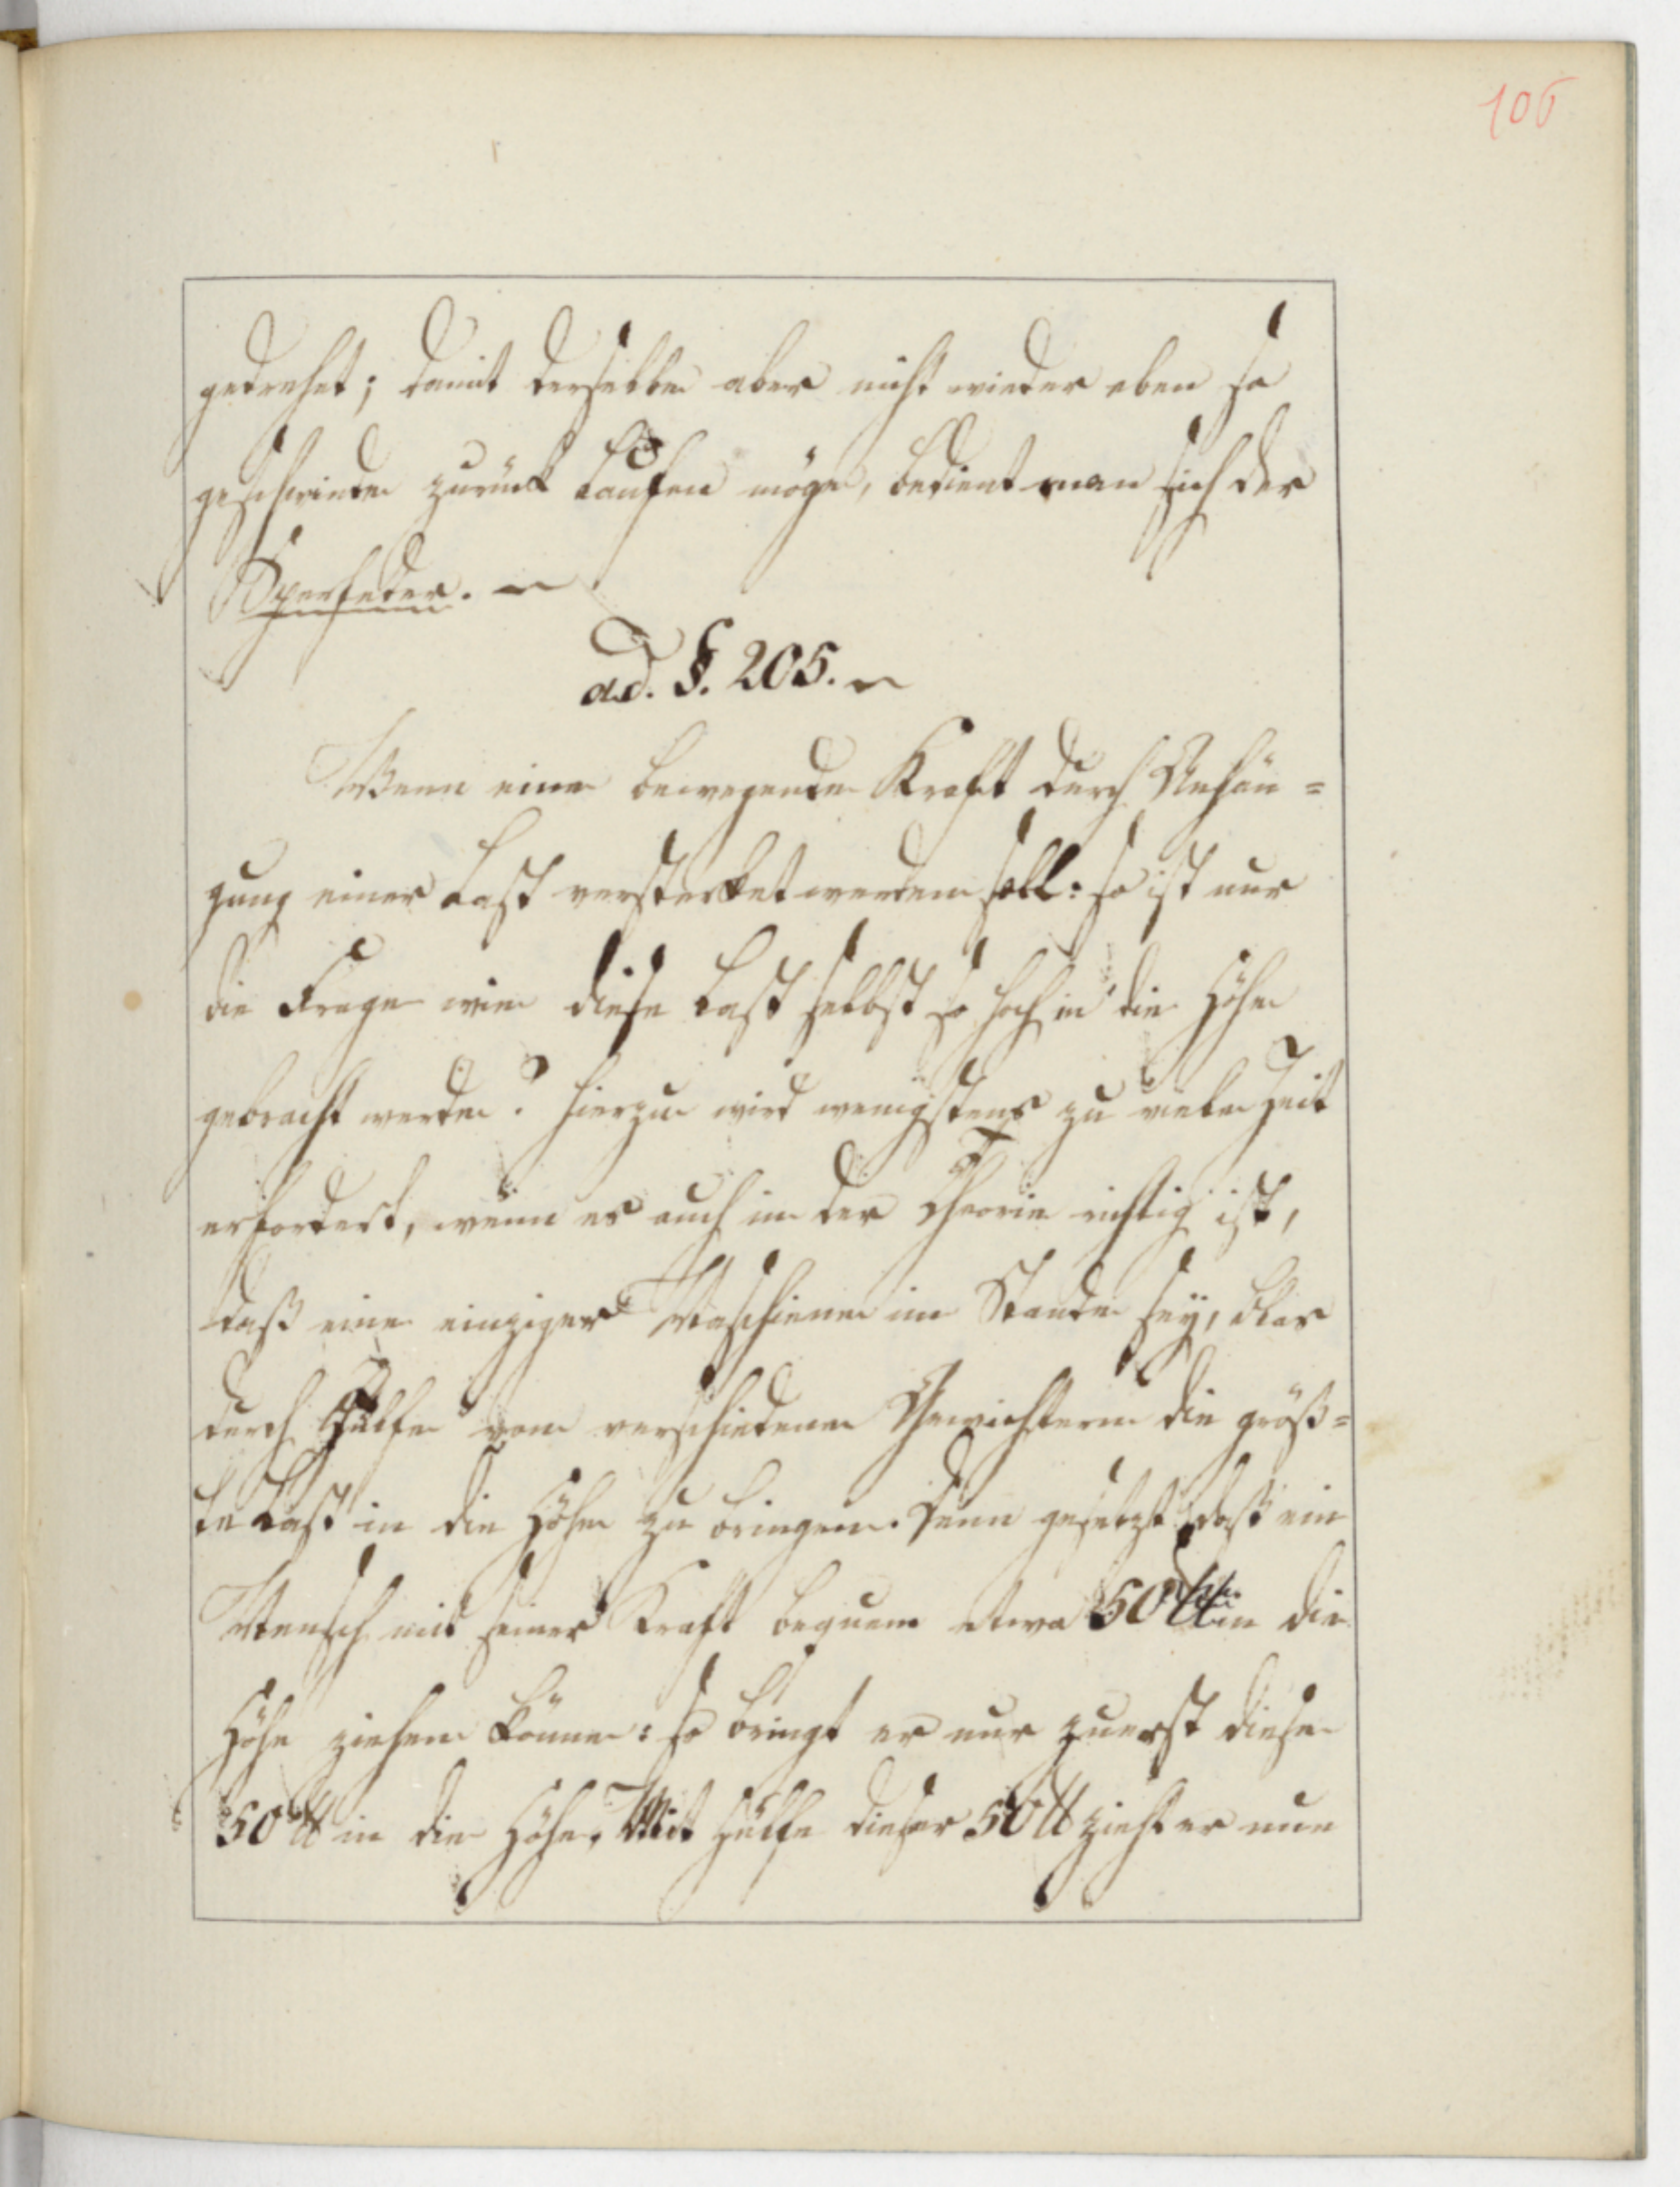 106
gedrehet; damit derselbe aber nicht wieder eben so
geschwinde zurück laufen möge, bedient man sich der
Sperfeder. —
ad. §. 205. —
Wenn eine bewegende Kraft durch Anhän=
gung einer Last verstärket werden soll: so ist nur
die Frage wie diese Last selbst so hoch in die Höhe
gebracht werde? hierzu wird wenigstens zu viele Zeit
erfordert, wenn es auch in der Theorie richtig ist,
daß eine einziger Maschiene im Stande sey, blos
durch Hülfe von verschiedenen Gewichtern die größ=
te Last in die Höhe zu bringen. Denn gesetzt daß ein
Mensch mit seiner Kraft bequem etwa 50 ℔ in die
Höhe ziehen könne: so bringt er nur zuerst diese
50 ℔ in die Höhe. Mit Hülfe dieser 50 ℔ zieht er nun